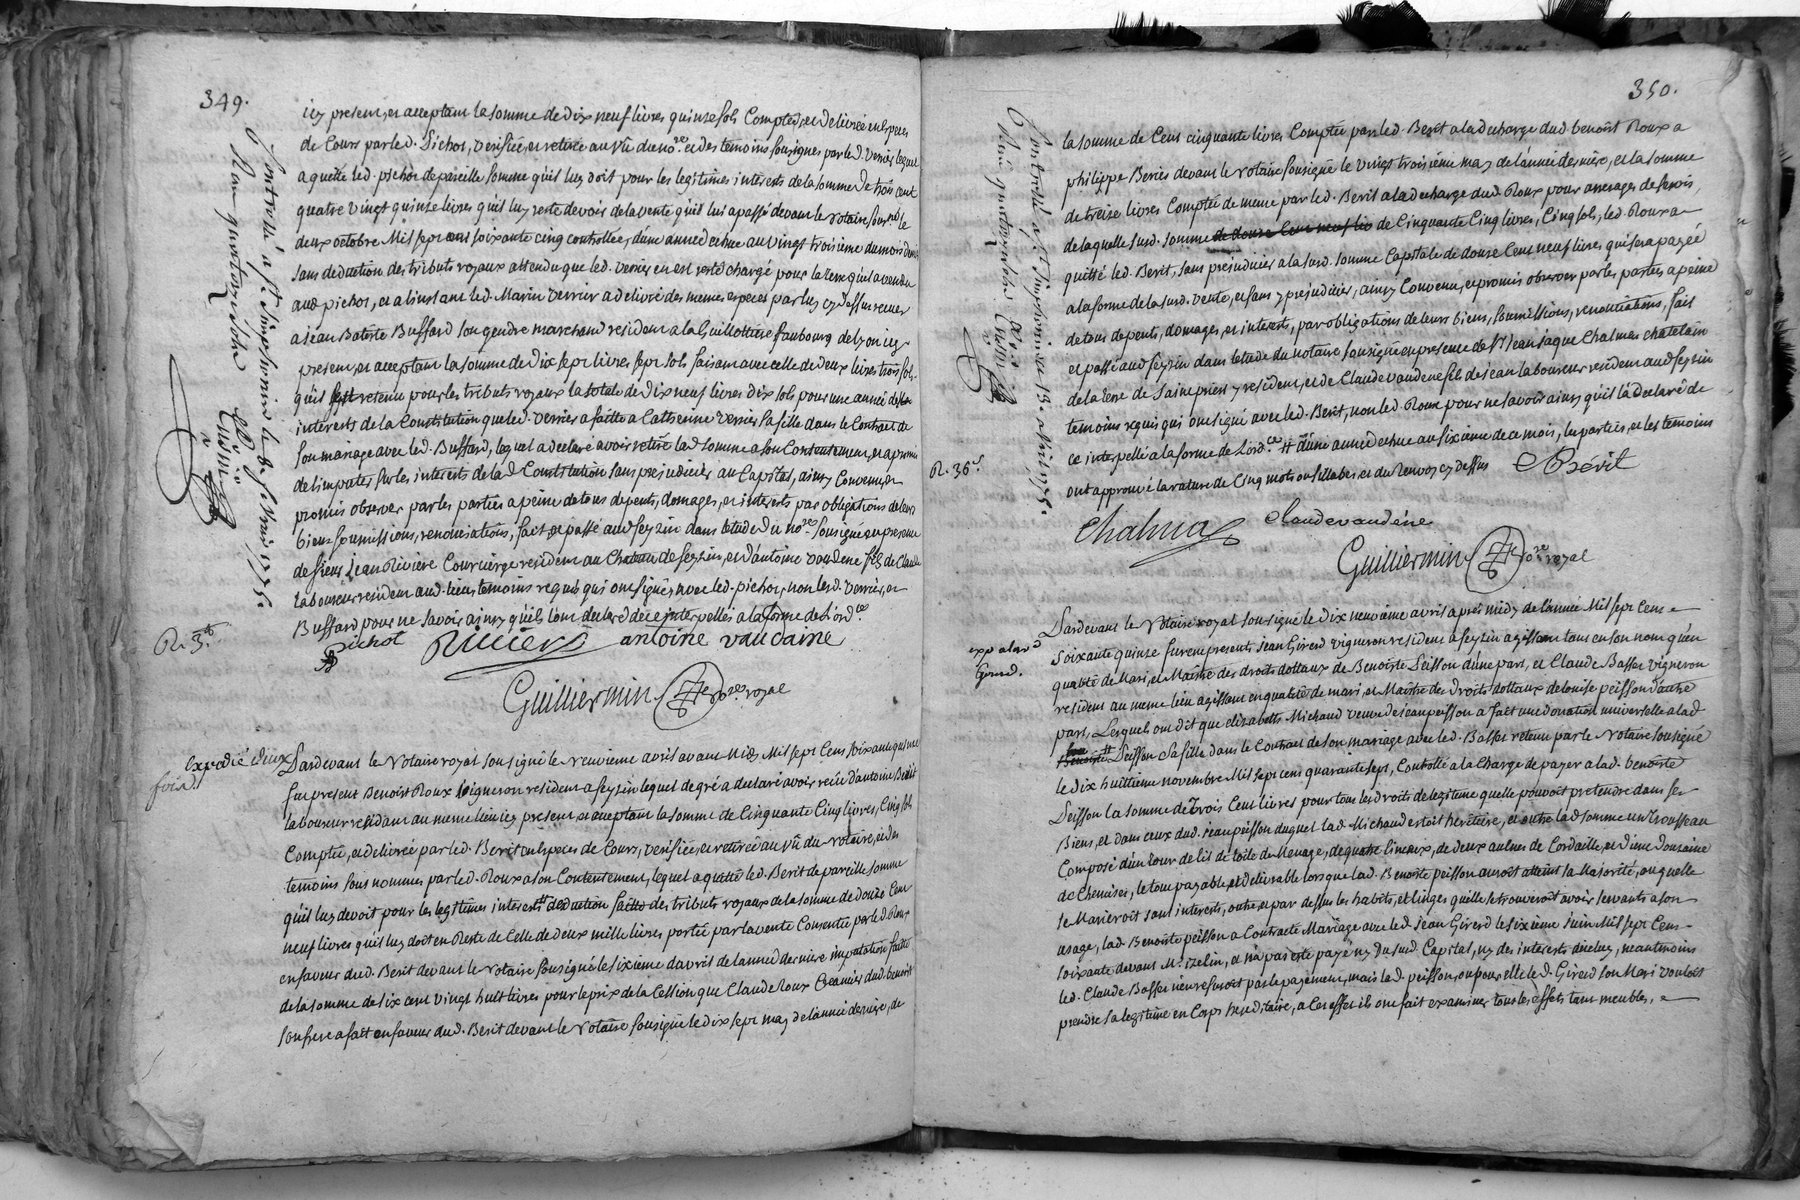 349.
icy present, et acceptant la somme de dix neuf livres quinze sols Comptée, et délivrée en especes
de Cours par led. Pichot, verifiée, et retirée au vû du no.re et des temoins sousignes par led. verrier lequel
a quitté led. pichot de pareille somme qu'il luy doit pour les legitimes interets de la somme de trois cent
quatre vingt quinze livres qu'il luy reste devoir de la vente qu'il lui a passé devant le notaire sous.né le
deux octobre Mil sept cent soixante cinq controllée, d'une année echue au vingt troisieme du mois
sans deduction des tributs royaux attendu que led. verrier en est resté chargé pour la terre qu'il a vendu
aud pichot, et a l'instant led. Marin verrier a delivré des memes especes par luy cy dessus recues
a jean Batiste Buffard son gendre marchand resident a la Guillottiere faubourg de lyon icy
present, et acceptant la somme de dix sept livres sept sols faisant avec celle de deux livres trois sols
qu'il retenu pour les tributs royaux la totale de dix neuf livres dix sols pour une année des
interets de la Constitution que led. verrier a faitte a Catherine verrier sa fille dans le Contract de
son mariage avec led. Buffard, lequel a declaré avoir retiré lad somme a son Contentement, et a promis
de l'imputer sur les interets de lad Constitution sans prejudicier au Capital, ainsy Convenu, et
promis observer par les parties a peine de tous depents, domages, et interets par obligations de leurs
biens soumissions, renonciations, fait, et passé aud seyzin dans l'etude du no.re sousigné en presence
de sieur jean Riviere Concierge resident au Chateau de seyzin, et d'antoine vaudene fils de Claude
laboureur resident aud. lieu temoins requis qui ont signés avec led. pichot, non lesd. verrier, et
Buffard pour ne savoir ainsy qu'ils l'ont declaré de ce interpellés a la forme de l'ord.ce
pichot Riviere antoine vaudaine
R. 3.s
Guilliermin No.re royal
expedié deux
fois.
Pardevant le Notaire royal sousigné le neuvieme avril avant Midy Mil sept Cens soixante quinze
fut present Benoist Roux vigneron resident a seyzin lequel de gré a declaré avoir recu d'antoine Berit
laboureur residant au meme lieu icy present et acceptant la somme de Cinquante Cinq livres, Cinq sols
Comptée, et delivrée par led. Berit en especes de Cours, verifiée, et retirée au vû du notaire, et des
temoins sous nommés par led. Roux a son Contentement, lequel a quitté led. Berit de pareille somme
qu'il luy devoit pour les legitimes interets deduction faitte des tributs royaux de la somme de douze Cent
neuf livres qu'il luy doit en Reste de Celle de deux mille livres portée par la vente Consentie par led Roux
en faveur dud. Berit devant le Notaire sousigné le sixieme d'avril de l'année derniere imputation faitte
de la somme de six cent vingt huit livres pour le prix de la Cession que Claude Roux Creancier dud. benoit
son frere a fait en faveur dud. Berit devant le Notaire sousigné le dix sept may de l'année derniere, de
350.
la somme de Cent cinquante livres Comptée par led. Berit a la decharge dud benoit Roux a
philippe Berier devant le Notaire sousigné le vingt troisieme may de l'année derniere, et la somme
de treize livres Comptée de meme par led. Berit a la decharge dud. Roux pour arrerages de servis,
de laquelle susd. somme de douze Cent neuf liv de Cinquante Cinq livres, Cinq sols, led. Roux a
quitté led. Berit, sans prejudicier a la susd. somme Capitale de douze Cent neuf livres qui sera payée
a la forme de la susd. vente, et sans y prejudicier, ainsy Convenu, et promis observer par les parties a peine
de tous depents, domages, et interets, par obligations de leurs biens, soumissions, renonciations, fait
et passé aud seyzin dans l'etude du notaire sousigné en presence de s.r jean jaque Chalmas chatelain
de la terre de saint priest y resident, et de Claude vaudene fils de jean laboureur resident aud seyzin
temoins requis qui ont signé avec led. Berit, non led Roux pour ne savoir ainsy qu'il l'a declaré de
ce interpellé a la forme de l'ord.ce # d'une année echue au sixieme de ce mois, les parties, et les temoins
ont approuvé la rature de Cinq mots ou sillabes et du renvoy cy dessus
A Berit
R. 36.s
Chalmas Claude vaudéne
Guilliermin No.re royal
exp a lad
Girerd.
Pardevant le Notaire royal sousigné le dix neuvieme avril apres midy de l'année Mil sept Cens
soixante quinze furent presents jean Girerd vigneron resident a seyzin agissant tant en son nom qu'en
qualité de Mari, et Maitre des droits dottaux de Benoiste Peisson d'une part, et Claude Basset vigneron
resident au meme lieu agissant en qualité de mari, et Maitre des droits dottaux de louise peisson d'autre
part, Lesquels ont dit que elizabeth Michaud veuve de jean peisson a fait une donation universelle a lad
Benoiste # Peisson sa fille dans le Contract de son mariage avec led. Basset retenu par le Notaire sousigné
le dix huittieme novembre Mil sept cens quarante sept, Controllé a la Charge de payer a lad. benoiste
Peisson la somme de Trois Cent livres pour tous les droits de legitime quelle pouvoit pretendre dans ses
Biens, et dans ceux dud. jean peisson duquel lad. Michaud estoit heritiere, et outre lad somme un Trousseau
Composé d'un tour de lit de toile de Menage, de quatre linceux, de deux aulnes de Cordaille, et d'une douzaine
de Chemises, le tout payable, et delivrable lorsque lad. Benoiste peisson auroit atteint sa Majorité, ou quelle
se Marieroit sans interets, outre, et par dessus les habits, et linges quelle se trouveroit avoir servants a son
usage, lad. Benoiste peisson a Contracté Mariage avec led jean Girerd le sixieme juin Mil sept Cens
soixante devant M. izelin, et n'a pas esté payé ny du susd. Capital, ny des interets d'icelluy, neantmoins
led. Claude Basset ne refusoit pas le payement, mais lad. peisson, ou pour elle led. Girerd son Mari vouloit
prendre sa legitime en Corps hereditaire, a Cet effet ils ont fait examiner tous les effets tant meubles,